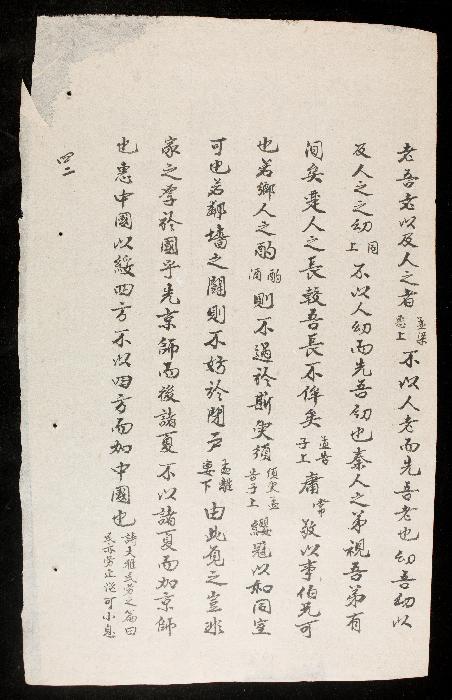 老吾老以及人之老孟梁惠上不以人老而先吾老也幼吾幼以
及人之幼同上不以人幼而先吾幼也秦人之弟視吾弟有
間矣楚人之長較吾長不侔矣孟告子上庸常敬以事伯兄可
也若鄉人之酌酌酒則不過於斯須孟告子上纓冠以救同室
可也若鄰墻之鬪則不妨於閉戶孟離婁下由此觀之豈非
家之季於國乎先京師而後諸夏不以諸夏而加京師
也惠中國以綏四方不以四方而加中國也詩大雅民勞之篇曰民亦勞止汔可小息
四二